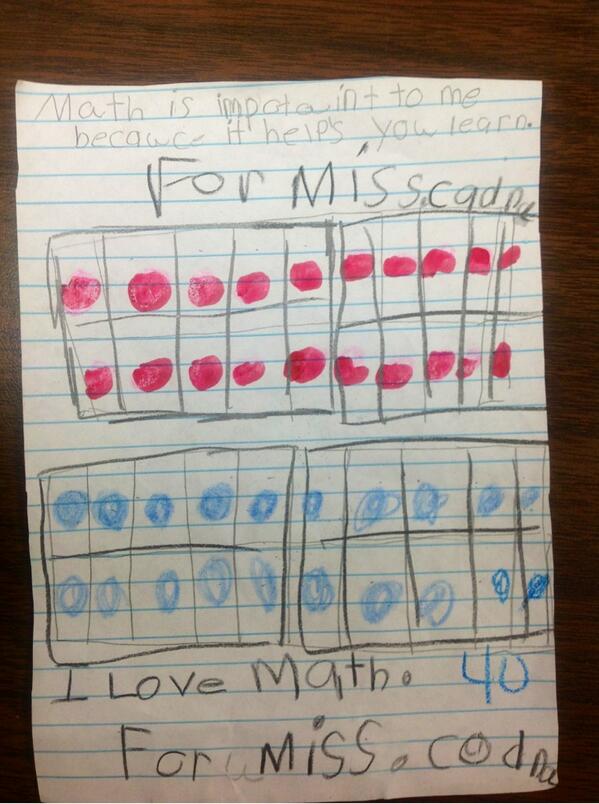 Math is impotaint to me
becawce it help's you learn.
For Miss.cadna
I Love Math. 40
For Miss.codna